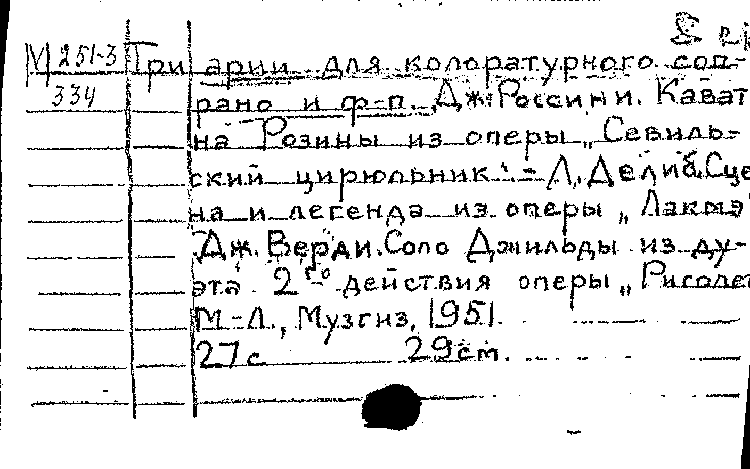 М 251-3 Три арии для колоратурного соп-
334 рано и ф-п. Дж. Россини. Кават
на Розины из оперы „Севиль-
ский цирюльник". - Л. Делиб. Сце
на и легенда из оперы „Лакмэ"
Дж. Верди. Соло Джильды из ду-
эта 2го действия оперы „Риголет
М.-Л., Музгиз, 1951.
27с 29см.